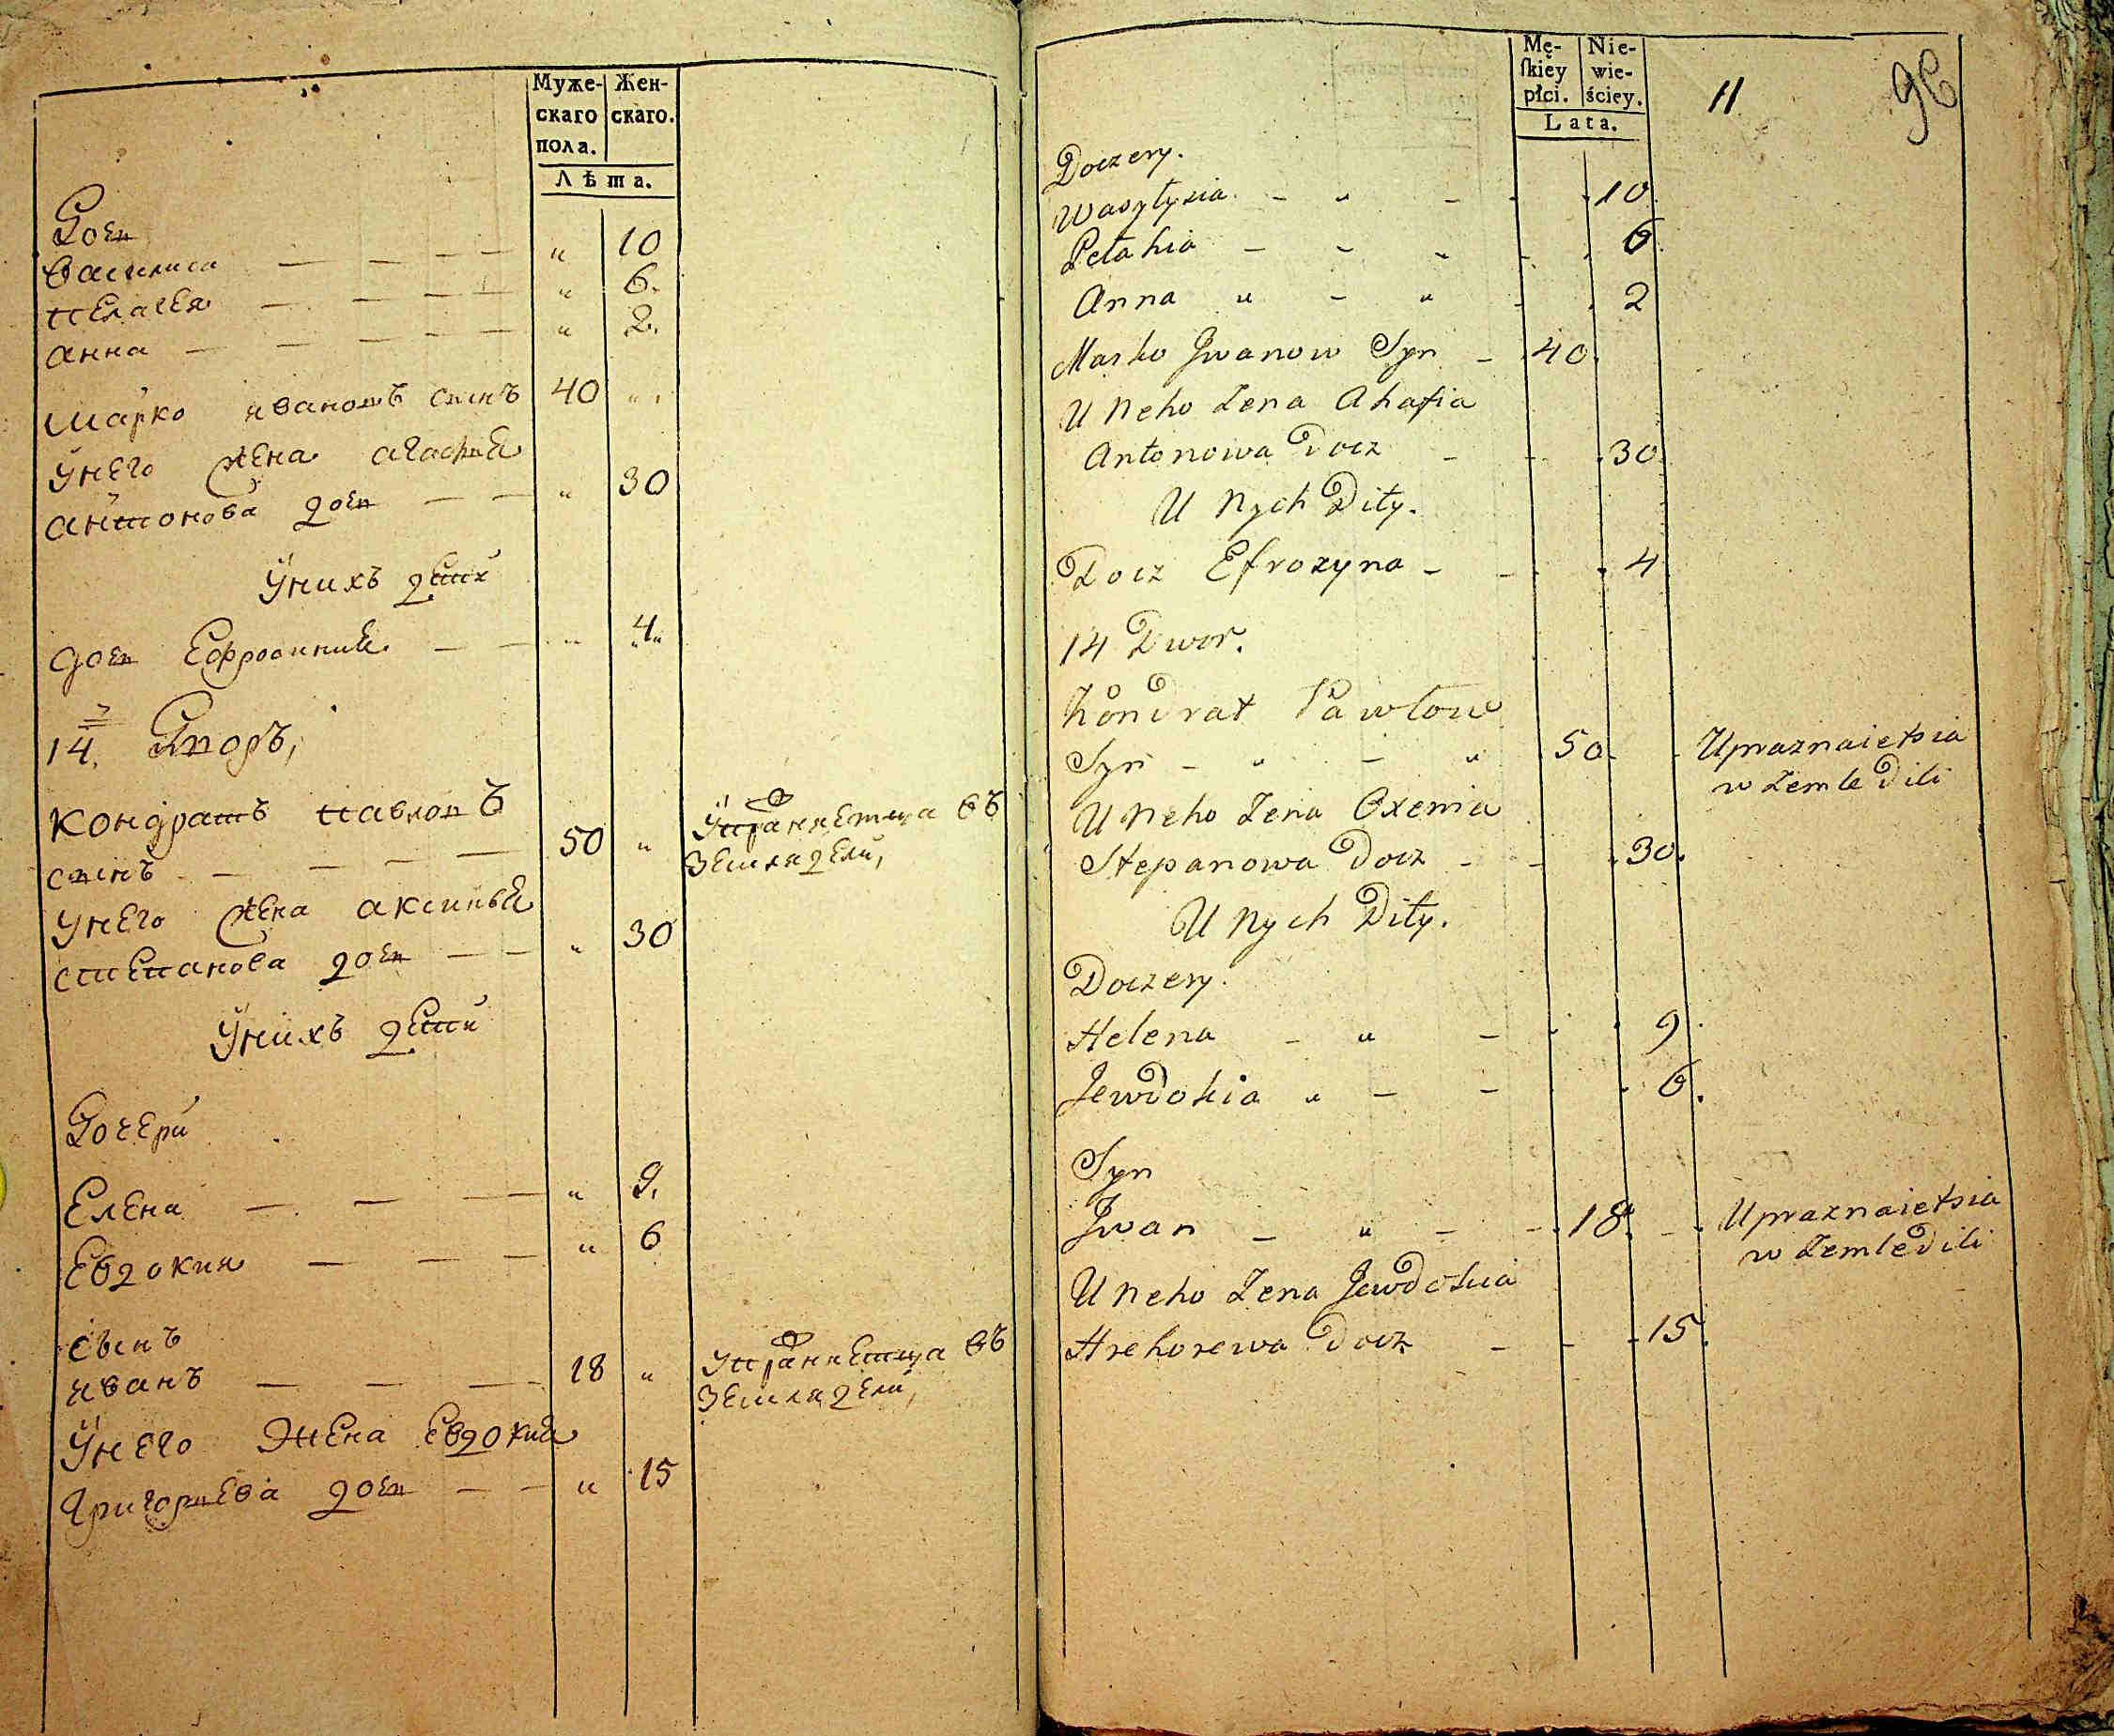 Муже-
скаго
пола.
Жен-
скаго.
Лѣта.
Доч
Василиса — — — — „ 10
Пелагея — — — — „ 6.
Анна — — — — — „ 2.
Марко ивановъ сынъ 40 „
Унего жена агафия
антонова доч — — „ 30
Унихъ дети
доч Ефросиния — — „ 4
14. Дворъ,
Кондратъ павловъ
сынъ — — — — 50 „ Упражняетца въ
земляделй,
Унего жена аксинья
степанова доч — — „ 30
Унихъ дети
Дочери
Елена — — — „ 9.
Евдокия — — — „ 6
сынъ
иванъ — — — 18 „ Упражняетца въ
земляделй,
Унего жена Евдокия
Григорьева доч — — „ 15
Mę-
ſkiey
płci.
Nie-
wie-
ściey.
Lata.
11
Doczery.
Wasyłysia - „ - - 10
Pełahia - - - - 6
Anna „ - „ - 2
Marko Jwanow Syn - 40.
U Neho Żena Ahafia
Antonowa Docz - - 30
U Nych Dity.
Docz Efrozyna - - 4
14 Dwor.
Kondrat Pawłow
Syn - „ - „ 50 - Uprażnaietsia
w Zemle Dili
U Neho Żena Oxenia
Stepanowa Docz - - 30.
U Nych Dity.
Doczery.
Helena - „ - 9
Jewdokia „ - - 6.
Syn
Jwan - „ - - 18 - Uprażnaietsia
w Zemledili
U Neho Żena Jewdokia
Hrehorewa Docz - - 15.